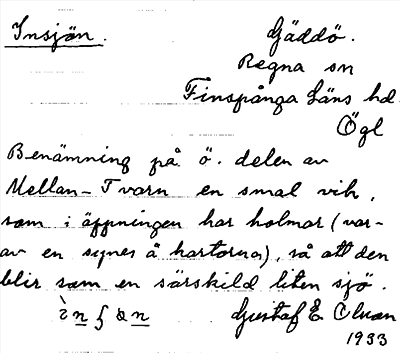 Insjön. Gäddö.
Regna sn
Finspånga läns hd.
Ögl
Benämning på ö. delen av
Mellan-Tvarn en smal vik,
som i öppningen har holmar (var-
av en synes å kartorna), så att den
blir som en särskild liten sjö.
Gustaf E Olson
1933